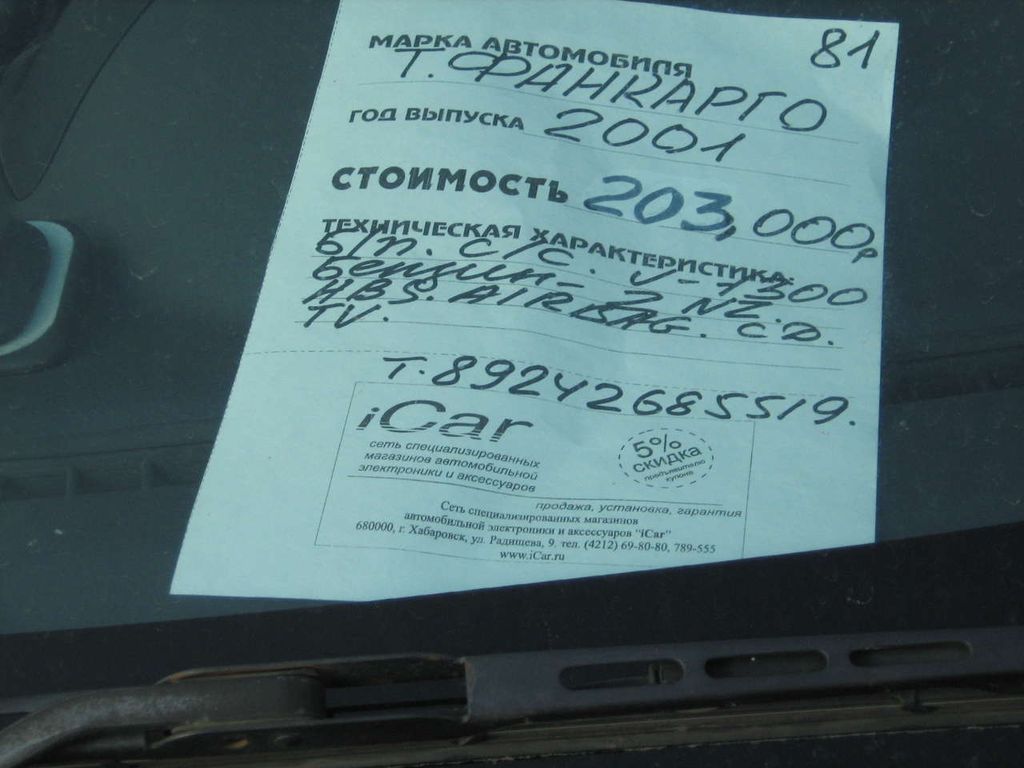 81
МАРКА АВТОМОБИЛЯ
Т. ФАНКАРГО
ГОД ВЫПУСКА 2001
СТОИМОСТЬ 203,000р
ТЕХНИЧЕСКАЯ ХАРАКТЕРИСТИКА:
Б/П. С/С. V-1300
Бензин- 2 NZ.
ABS. AIRBAG. CD.
TV.
Т. 89242685519.
iCar
сеть специализированных
магазинов автомобильной
электроники и аксессуаров
5%
СКИДКА
предъявителю
купона
продажа, установка, гарантия
Сеть специализированных магазинов
автомобильной электроники и аксессуаров "iCar"
680000, г. Хабаровск, ул. Радищева, 9. тел. (4212) 69-80-80, 789-555
www.iCar.ru